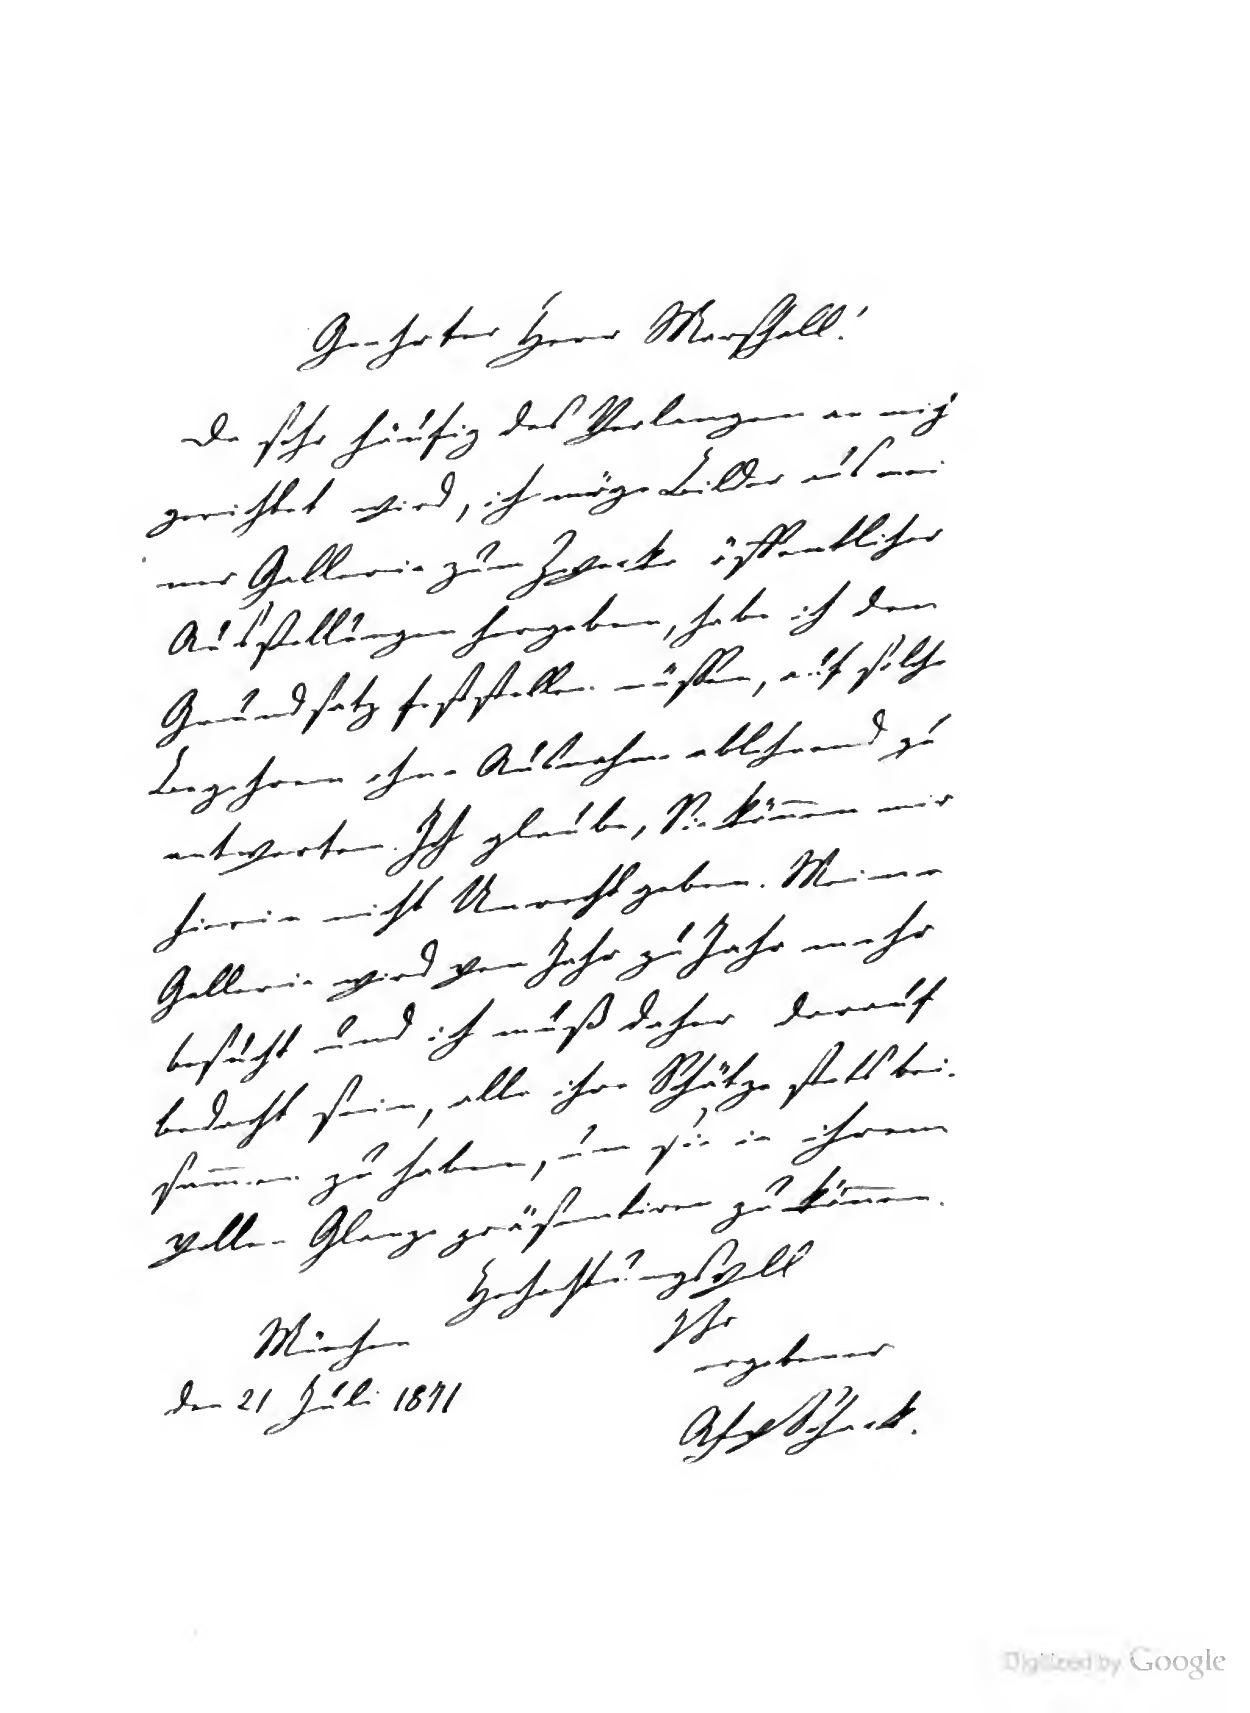 Geehrter Herr Marshall!
Da sehr häufig das Verlangen an mich
gerichtet wird, ich möge Bilder aus mei
ner Gallerie zum Zwecke öffentlicher
Ausstellungen hergeben, habe ich den
Grundsatz feststellen müssen, auf solche
Begehren ohne Ausnahme ablehnend zu
antworten. Ich glaube, Sie können mir
hierin nicht Unrecht geben. Meine
Gallerie wird von Jahr zu Jahr mehr
besucht und ich muß daher darauf
bedacht sein, alle ihre Schätze stets bei-
sammen zu haben, um sie in ihrem
vollen Glanze präsentiren zu können.
Hochachtungsvoll
Ihr
ergebener
München
den 21 Juli 1871
Schack.
Digitized by Google